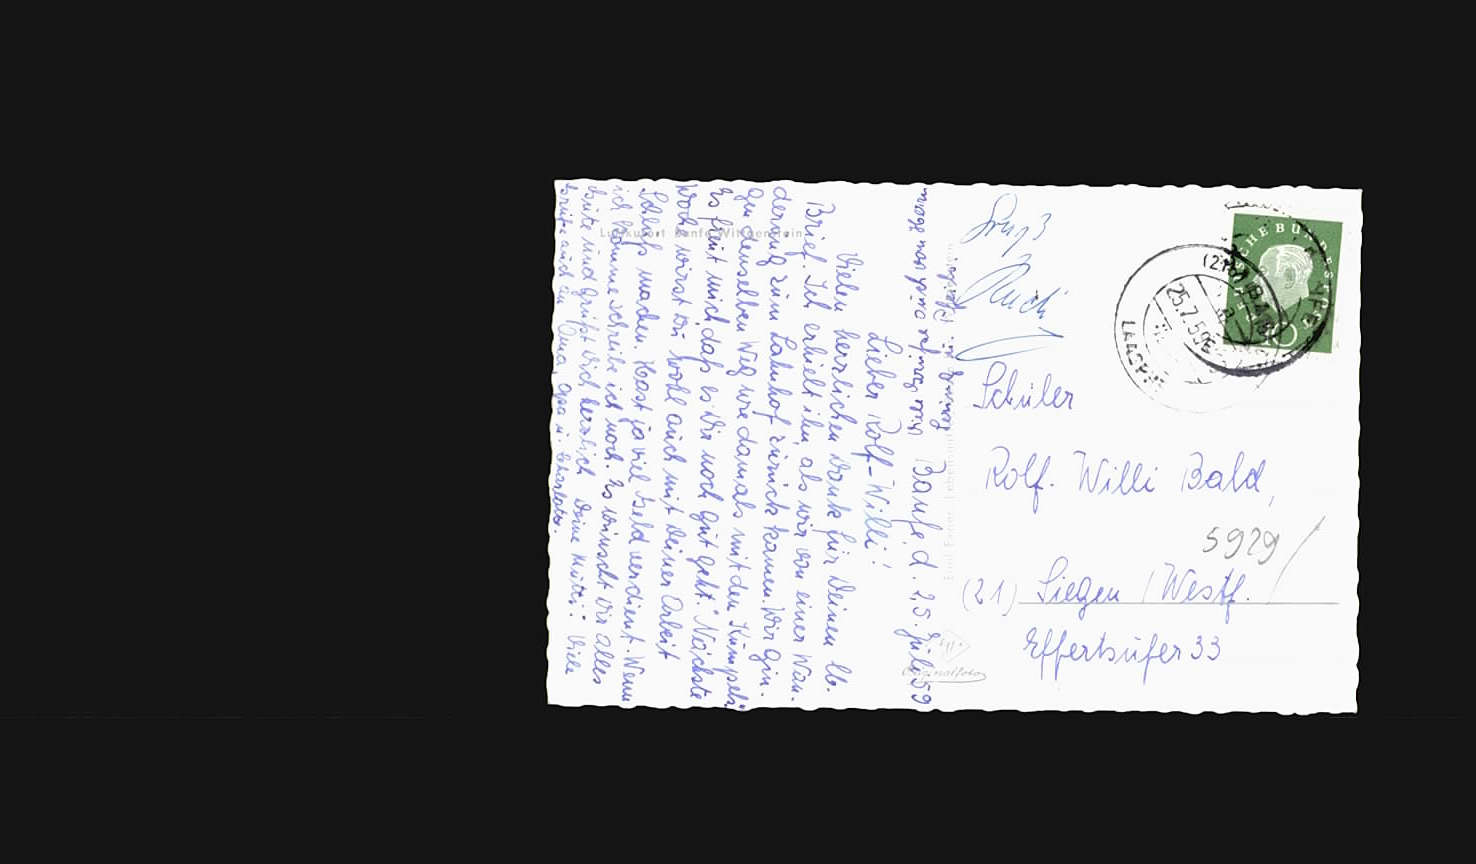 Luftkurort Banfe Wittgenstein
Banfe, d. 25. Juli 59
Lieber Rolf-Willi!
Vielen herzlichen Dank für Deinen lb.
Brief. Ich erhielt ihn, als wir von einer Wan-
derung zum Lahnhof zurück kamen. Wir gin-
gen denselben Weg wie damals mit den "Kumpels"
Es freut mich, daß es Dir noch gut geht. Nächste
Woche wirst Du wohl auch mit Deiner Arbeit
Schluß machen. Hast ja viel Geld verdient. Wenn
ich komme schreibe ich noch. Es wünscht Dir alles
Gute und grüßt Dich herzlich Deine Mutti. Viele
Grüße auch an Oma, Opa u.
Viele Grüße auch von Herrn
Originalfoto
Schüler
Rolf. Willi Bald,
5929
(21) Siegen / Westf.
Effertsufer 33
25.7.59